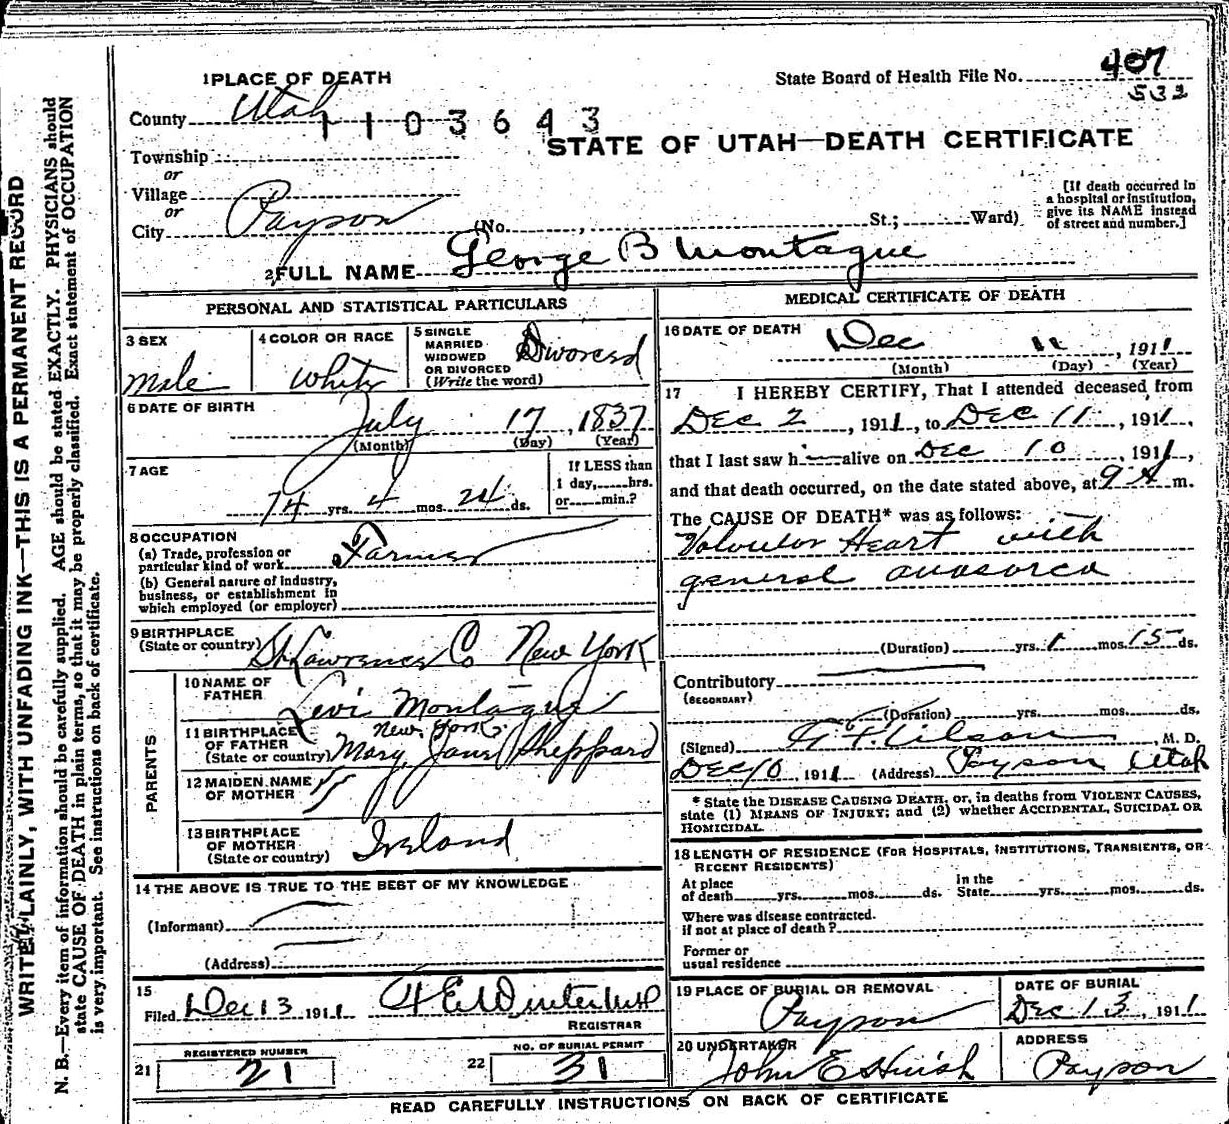 1 PLACE OF DEATH
State Board of Health File No. 407
532
County Utah
1103643
STATE OF UTAH—DEATH CERTIFICATE
Township
or
Village
or
City Payson (No. , St.; Ward)
[If death occurred in
a hospital or institution,
give its NAME instead
of street and number.]
2 FULL NAME George B Montague
PERSONAL AND STATISTICAL PARTICULARS
3 SEX
Male
4 COLOR OR RACE
White
5 SINGLE
MARRIED
WIDOWED
OR DIVORCED
(Write the word)
Divorced
6 DATE OF BIRTH
July 17, 1837
(Month) (Day) (Year)
7 AGE
74 yrs. 4 mos. 24 ds.
If LESS than
1 day, hrs.
or min.?
8 OCCUPATION
(a) Trade, profession or
particular kind of work Farmer
(b) General nature of industry,
business, or establishment in
which employed (or employer)
9 BIRTHPLACE
(State or country) St Lawrence Co New York
PARENTS
10 NAME OF
FATHER
Levi Montague
11 BIRTHPLACE
OF FATHER
(State or country)
New York
Mary Jane Sheppard
12 MAIDEN NAME
OF MOTHER
13 BIRTHPLACE
OF MOTHER
(State or country)
Ireland
14 THE ABOVE IS TRUE TO THE BEST OF MY KNOWLEDGE
(Informant)
(Address)
15
Filed Dec 13 1911
REGISTRAR
REGISTERED NUMBER
21 21
NO. OF BURIAL PERMIT
22 31
MEDICAL CERTIFICATE OF DEATH
16 DATE OF DEATH
Dec 11, 1911
(Month) (Day) (Year)
17 I HEREBY CERTIFY, That I attended deceased from
Dec 2, 1911, to Dec 11, 1911,
that I last saw h alive on Dec 10, 1911,
and that death occurred, on the date stated above, at 9 A m.
The CAUSE OF DEATH* was as follows:
Valvular Heart with
general anasorca
(Duration) yrs. 1 mos. 15 ds.
Contributory
(SECONDARY)
(Duration) yrs. mos. ds.
(Signed) , M. D.
Dec 10, 1911 (Address) Payson Utah
* State the DISEASE CAUSING DEATH, or, in deaths from VIOLENT CAUSES,
state (1) MEANS OF INJURY; and (2) whether ACCIDENTAL, SUICIDAL OR
HOMICIDAL.
18 LENGTH OF RESIDENCE (FOR HOSPITALS, INSTITUTIONS, TRANSIENTS, OR
RECENT RESIDENTS)
At place
of death yrs. mos. ds.
in the
State yrs. mos. ds.
Where was disease contracted.
if not at place of death?
Former or
usual residence
19 PLACE OF BURIAL OR REMOVAL
Payson
DATE OF BURIAL
Dec 13, 1911
20 UNDERTAKER
John E Huish
ADDRESS
Payson
READ CAREFULLY INSTRUCTIONS ON BACK OF CERTIFICATE
WRITE PLAINLY, WITH UNFADING INK—THIS IS A PERMANENT RECORD
N. B.—Every item of information should be carefully supplied. AGE should be stated EXACTLY. PHYSICIANS should
state CAUSE OF DEATH in plain terms, so that it may be properly classified. Exact statement of OCCUPATION
is very important. See instructions on back of certificate.